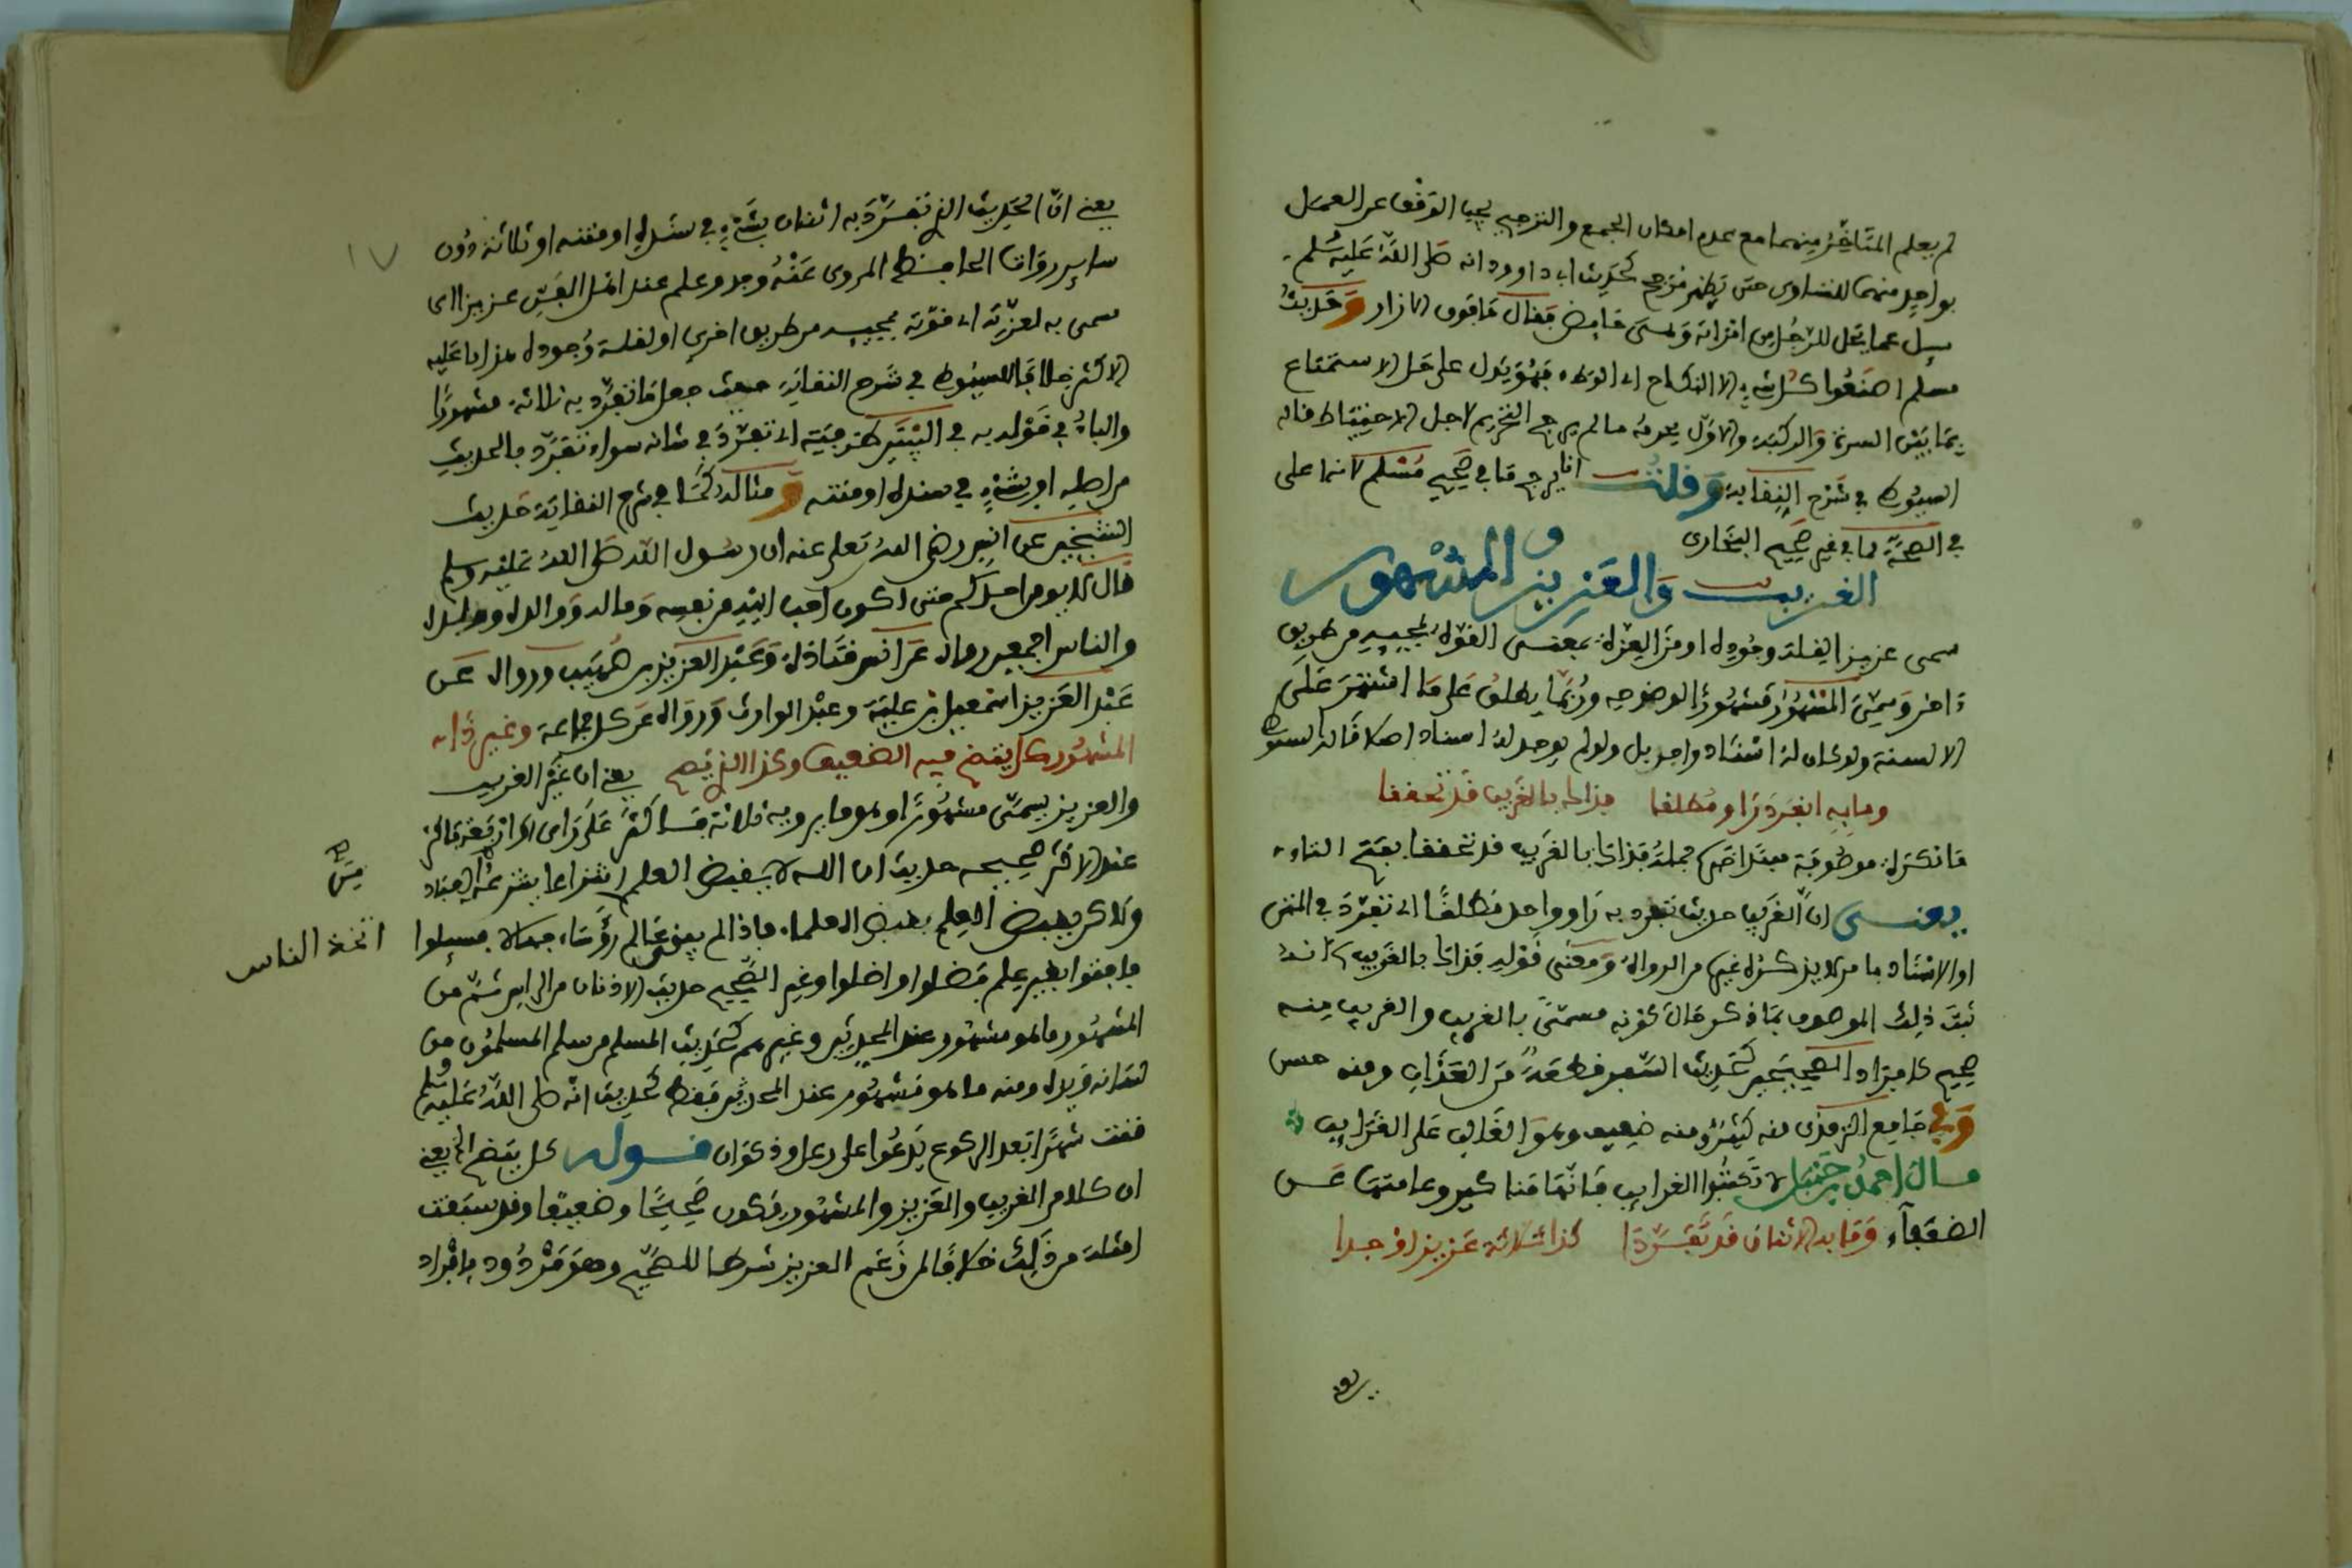 لم يعلم المتأخر منهما مع عدم امكان الجمع والترجيح يجب التوقف عن العمل
بواحد منهما للتساوي حتى يظهر مرجح كحديث ابي داوود انه صلى الله عليه وسلم
سيل عما يحل للرجل من امرأته وهي حايض فقال ما فوق الازار وحديث
مسلم اصنعوا كل شيء الا النكاح اي الوطء فهو يدل على حل الاستمتاع
بما بين السرة والركبة والاول يحرمه مالم يرجح التحريم لاجل الاحتياط قاله
السيوطي في شرح النقاية وقلت انما يرجح ما في صحيح مسلم لانها على
في الصحة مما في غير صحيح البخاري
الغريب والعزيز والمشهور
سمى عزيز القلة وجوده او من العزة بمعنى القوة لمجييه من طريق
اخر وسمي المشهور مشهورا لوضوحه وربما يطلق على ما اشتهر على
الالسنة ولو كان له اسناد واحد بل ولو لم يوجد له اسناد اصلا قاله السيوطي
وما به انفرد راو مطلقا فذاك بالغريب قد تحققا
ما نكرة موصوفة مبتدا خبره جملة فذاك بالغريب قد تحققا بفتح التاء
يعني ان الغريب حديث تفرد به راو واحد مطلقا اي تفرد في المتن
او الاسناد بامر لا يذكره غيره من الرواة ومعنى قوله فذاك بالغريب انه
ثبت ذلك الموصوف بما ذكر حال كونه مسمى بالغريب والغريب منه
صحيح كافراد الصحيحين كحديث السفر قطعة من العذاب ومنه حسن
وفي جامع الترمذي منه كثير ومنه ضعيف وهو الغالب على الغرايب
قال احمد بن حنبل لا تكتبوا الغرايب فانها مناكير وعامتها عن
الضعفاء وما به الاثنان قد تفردا كذا ثلاثة عزيزا وجدا
يعني
يعني ان الحديث الذي تفرد به اثنان بشيء في سنده او متنه او ثلاثة دون
ساير رواة الحافظ المروي عنه وجد وعلم عند اهل الفن عزيزا اي
سمى به لعزته اي قوته بمجييه من طريق اخرى او لقلة وجوده هذا ما عليه
الاكثر خلافا للسيوطي في شرح النقاية حيث جعل ما تفرد به ثلاثة مشهورا
والباء في قوله به في البيتين ظرفية اي تفرد في شانه سواء تفرد بالحديث
من اصله او بشيء في سنده او متنه ومثاله كما في شرح النقاية حديث
الشيخين عن انس رضي الله تعلى عنه ان رسول الله صلى الله عليه وسلم
قال لا يومن احدكم حتى اكون احب اليه من نفسه وماله ووالده وولده
والناس اجمعين رواه عن انس قتادة وعبد العزيز بن صهيب ورواه عن
عبد العزيز اسمعيل بن علية وعبد الوارث ورواه عن كل جماعة وغير ذا
المشهور كل يقع فيه الضعيف وكذا الذي صح يعني ان غير الغريب
والعزيز يسمى مشهورا وهو ما يرويه ثلاثة فاكثر على راى او اربعة فاكثر
عند الاكثر صحيحه حديث ان الله لا يقبض العلم انتزاعا ينتزعه من العباد
ولاكن يقبض العلم بقبض العلماء فاذا لم يبق عالم رؤساء جهالا فسيلوا
اتخذ الناس
فافتوا بغير علم فضلوا واضلوا وغير الصحيح حديث الاذنان من الراس ثم من
المشهور ما هو مشهور عند المحدثين وغيرهم كحديث المسلم من سلم المسلمون من
لسانه ويده ومنه ما هو مشهور عند المحدثين فقط كحديث انه صلى الله عليه وسلم
قنت شهرا بعد الركوع يدعوا على رعل وذكوان قوله كل يقع الخ يعني
ان كلا من الغريب والعزيز والمشهور يكون صحيحا وضعيفا وقد سبقت
امثلة من ذلك خلافا لمن زعم العزيز شرطا للصحيح وهو مردود بافراد